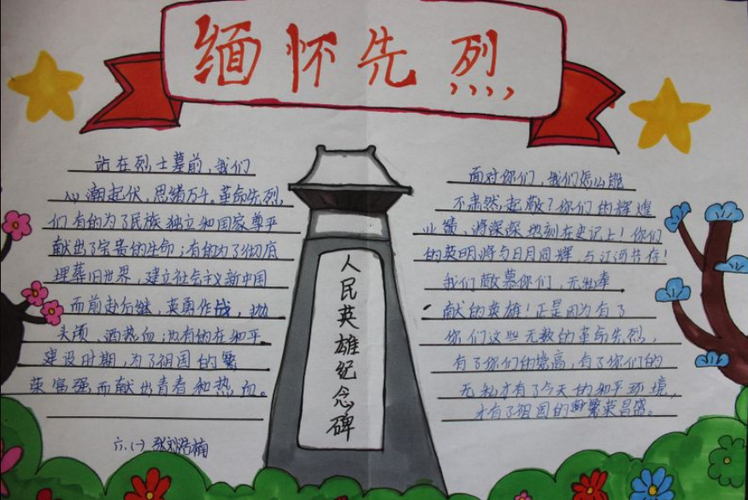 缅怀先烈
站在烈士墓前,我们
心潮起伏,思绪万千,革命先烈,
们有的为了民族独立和国家尊严
献出了宝贵的生命;有的为了彻底
埋葬旧世界,建立社会主义新中国
而前赴后继,英勇作战,抛
头颅,洒热血;也有的在和平
建设时期,为了祖国的繁
荣富强而献出青春和热血。
六.(一)
人民英雄纪念碑
面对你们,我们怎么能
不肃然起敬?你们的辉煌
业绩,将深深地刻在史记上!你们
的英明将与日月同辉,与江河共存!
我们敬慕你们,无私奉
献的英雄!正是因为有了
你们这些无数的革命先烈,
有了你们的崇高,有了你们的
无私才有了今天的和平环境,
才有了祖国的繁荣昌盛。